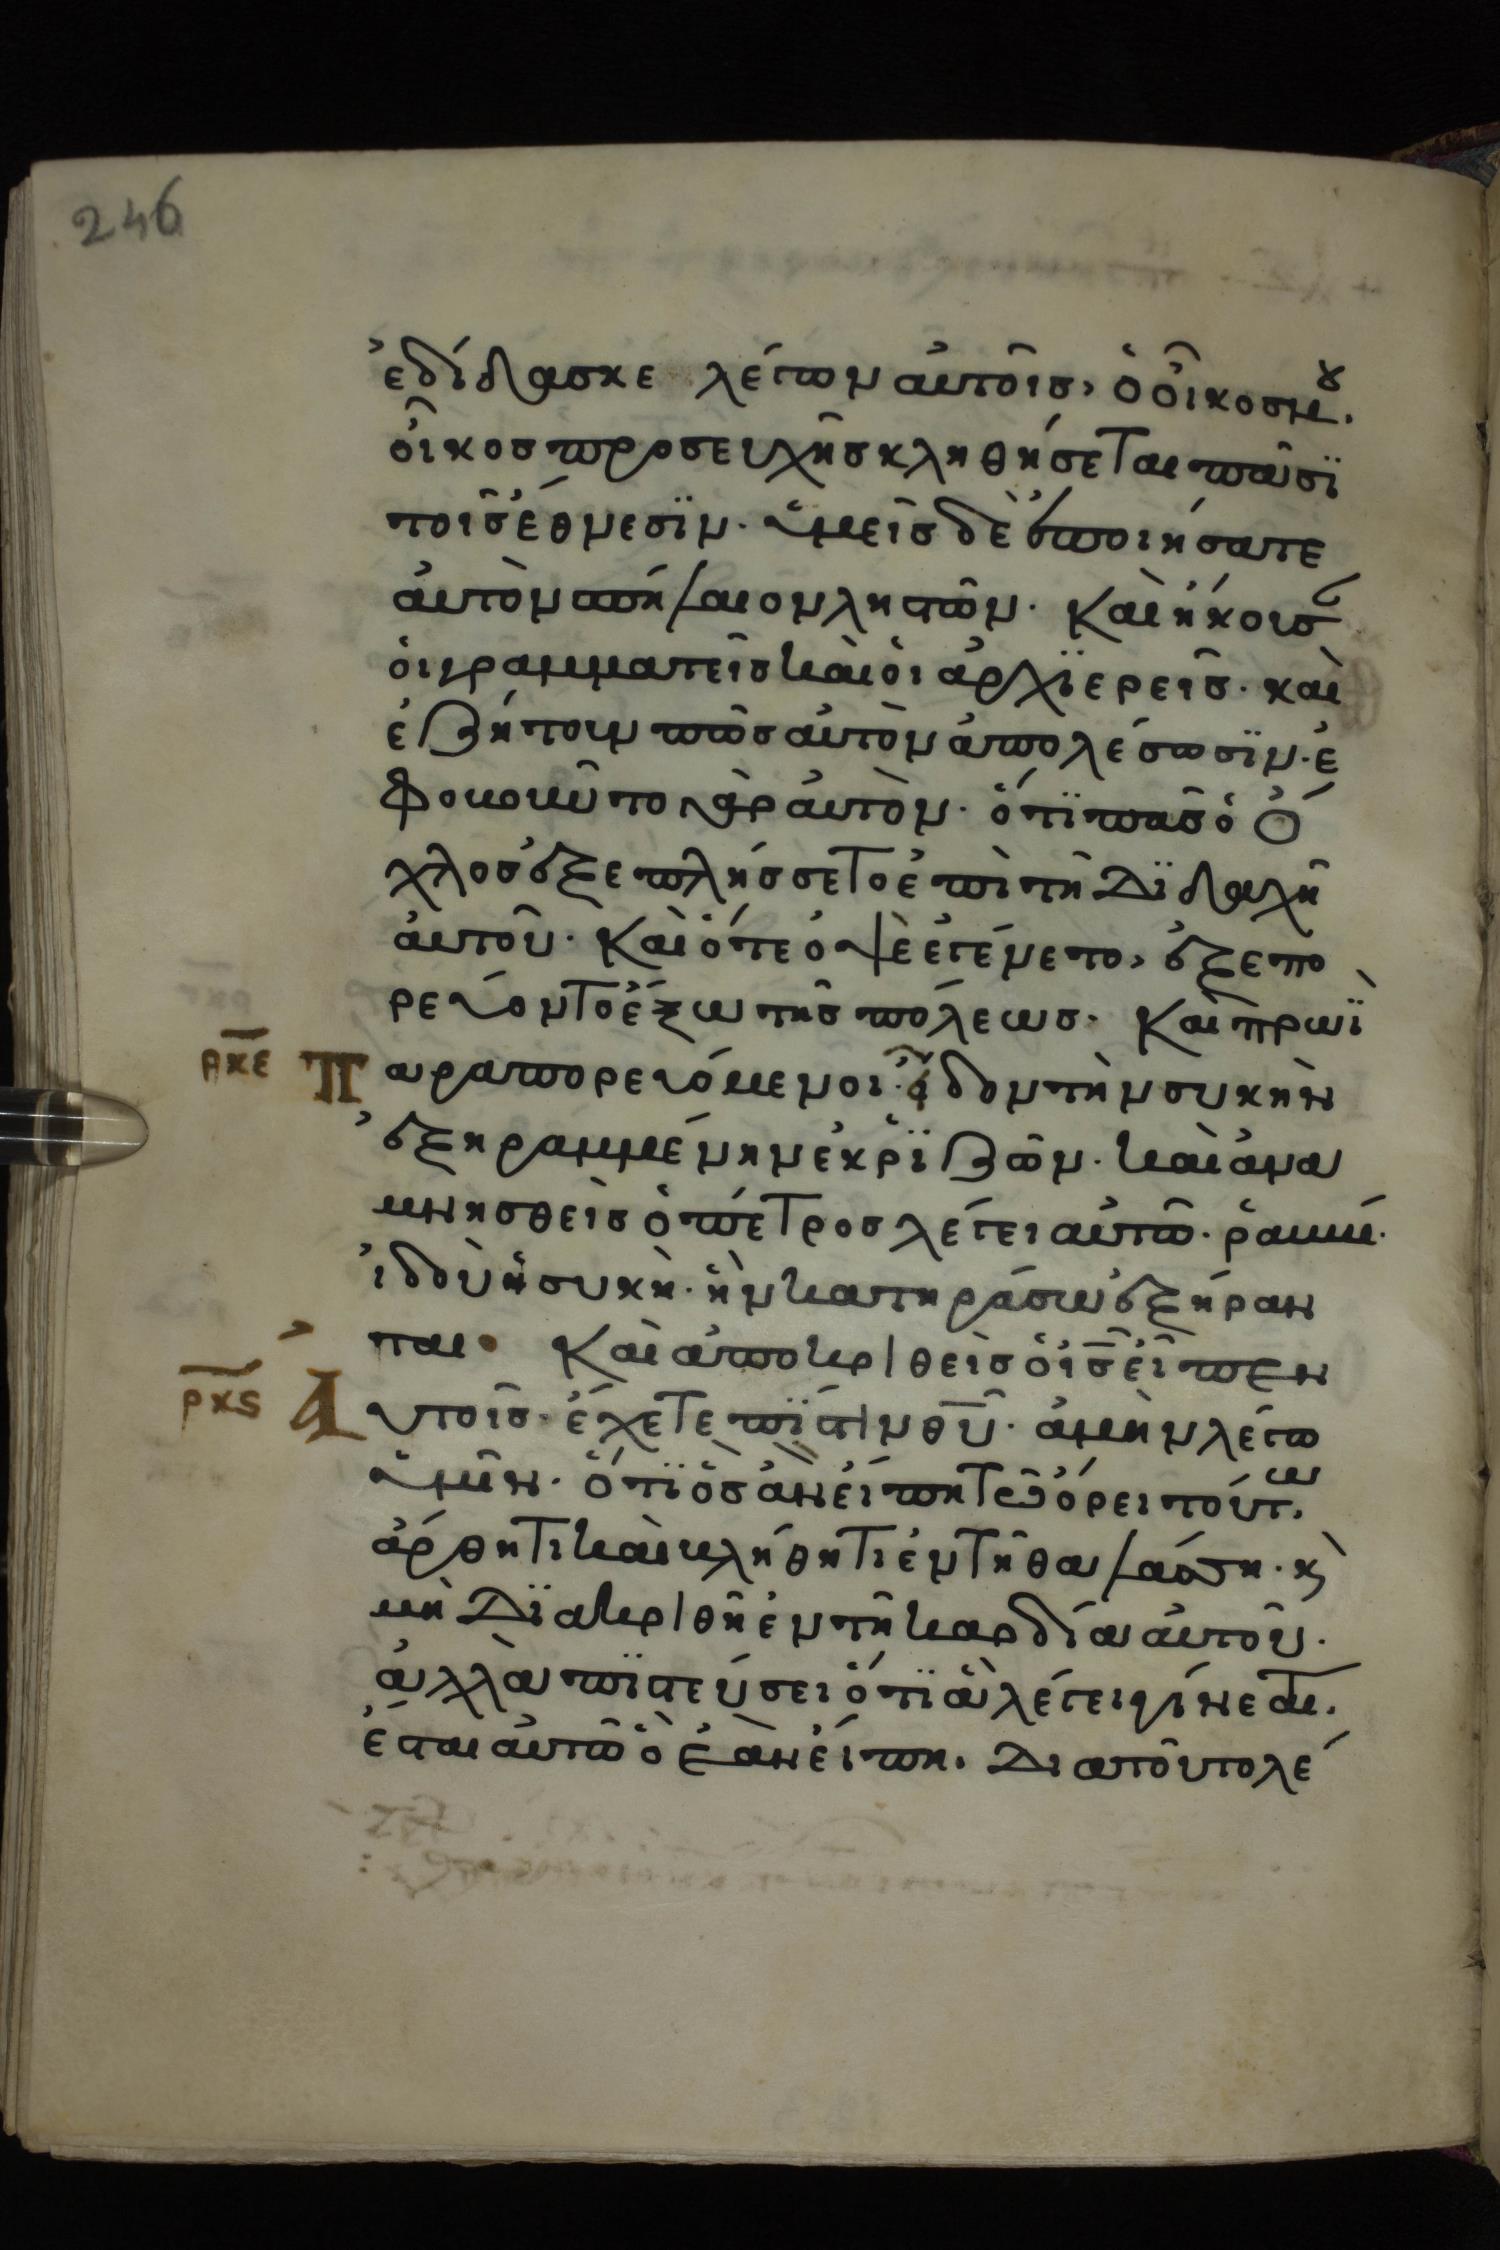 246
ἐδίδασκε λέγων αὐτοῖς, ὁ οἶκος μου.
οἶκος προσευχῆς κληθήσεται πᾶσϊ
τοῖς ἔθνεσϊν. ὑμεῖς δὲ ἐποιήσατε
αὐτὸν σπήλαιον ληστῶν. Καὶ ἤκουσ
οἱ γραμματεῖς καὶ οἱ ἀρχϊερεῖς. καὶ
ἐζήτουν πῶς αὐτὸν ἀπολέσωσϊν. ἐ
φοβοῦντο γὰρ αὐτὸν. ὅτϊ πᾶς ὁ ὄ
χλος ἐξεπλήσσετο ἐπὶ τῆ Δϊδαχῆ
αὐτοῦ. Καὶ ὅτε ὀψὲ ἐγένετο, ἐξεπο
ρεύοντο ἔξω τῆς πόλεως. Καὶ πρωῒ
ρκε Π αραπορευόμενοι. εἶδον τὴν συκὴν
ἐξηραμμένην ἐκ ῥϊζῶν. καὶ ἀνα
μνησθεὶς ὁ πέτρος λέγει αὐτῶ. ῥαββί.
ἰδοὺ ἡ συκὴ. ἣν κατηράσω ἐξήραν
ται. Καὶ ἀποκριθεὶς ὁ ις εἶπεν
ρκς Α υτοῖς. ἔχετε πϊστιν θυ. ἀμὴν λέγω
ὑμῖν. ὅτϊ ὃς ἂν εἴπη τῶ ὄρει τούτω.
ἄρθητι καὶ βλήθητι ἐν τῆ θαλάσση. κ
μὴ Δϊακριθῆ ἐν τῆ καρδία αὐτοῦ.
ἀλλὰ πϊστεύσει ὅτϊ ἃ λέγει γίνεται.
ἔσται αὐτῶ ὃ ἐὰν εἴπη. Δια τοῦτο λέ